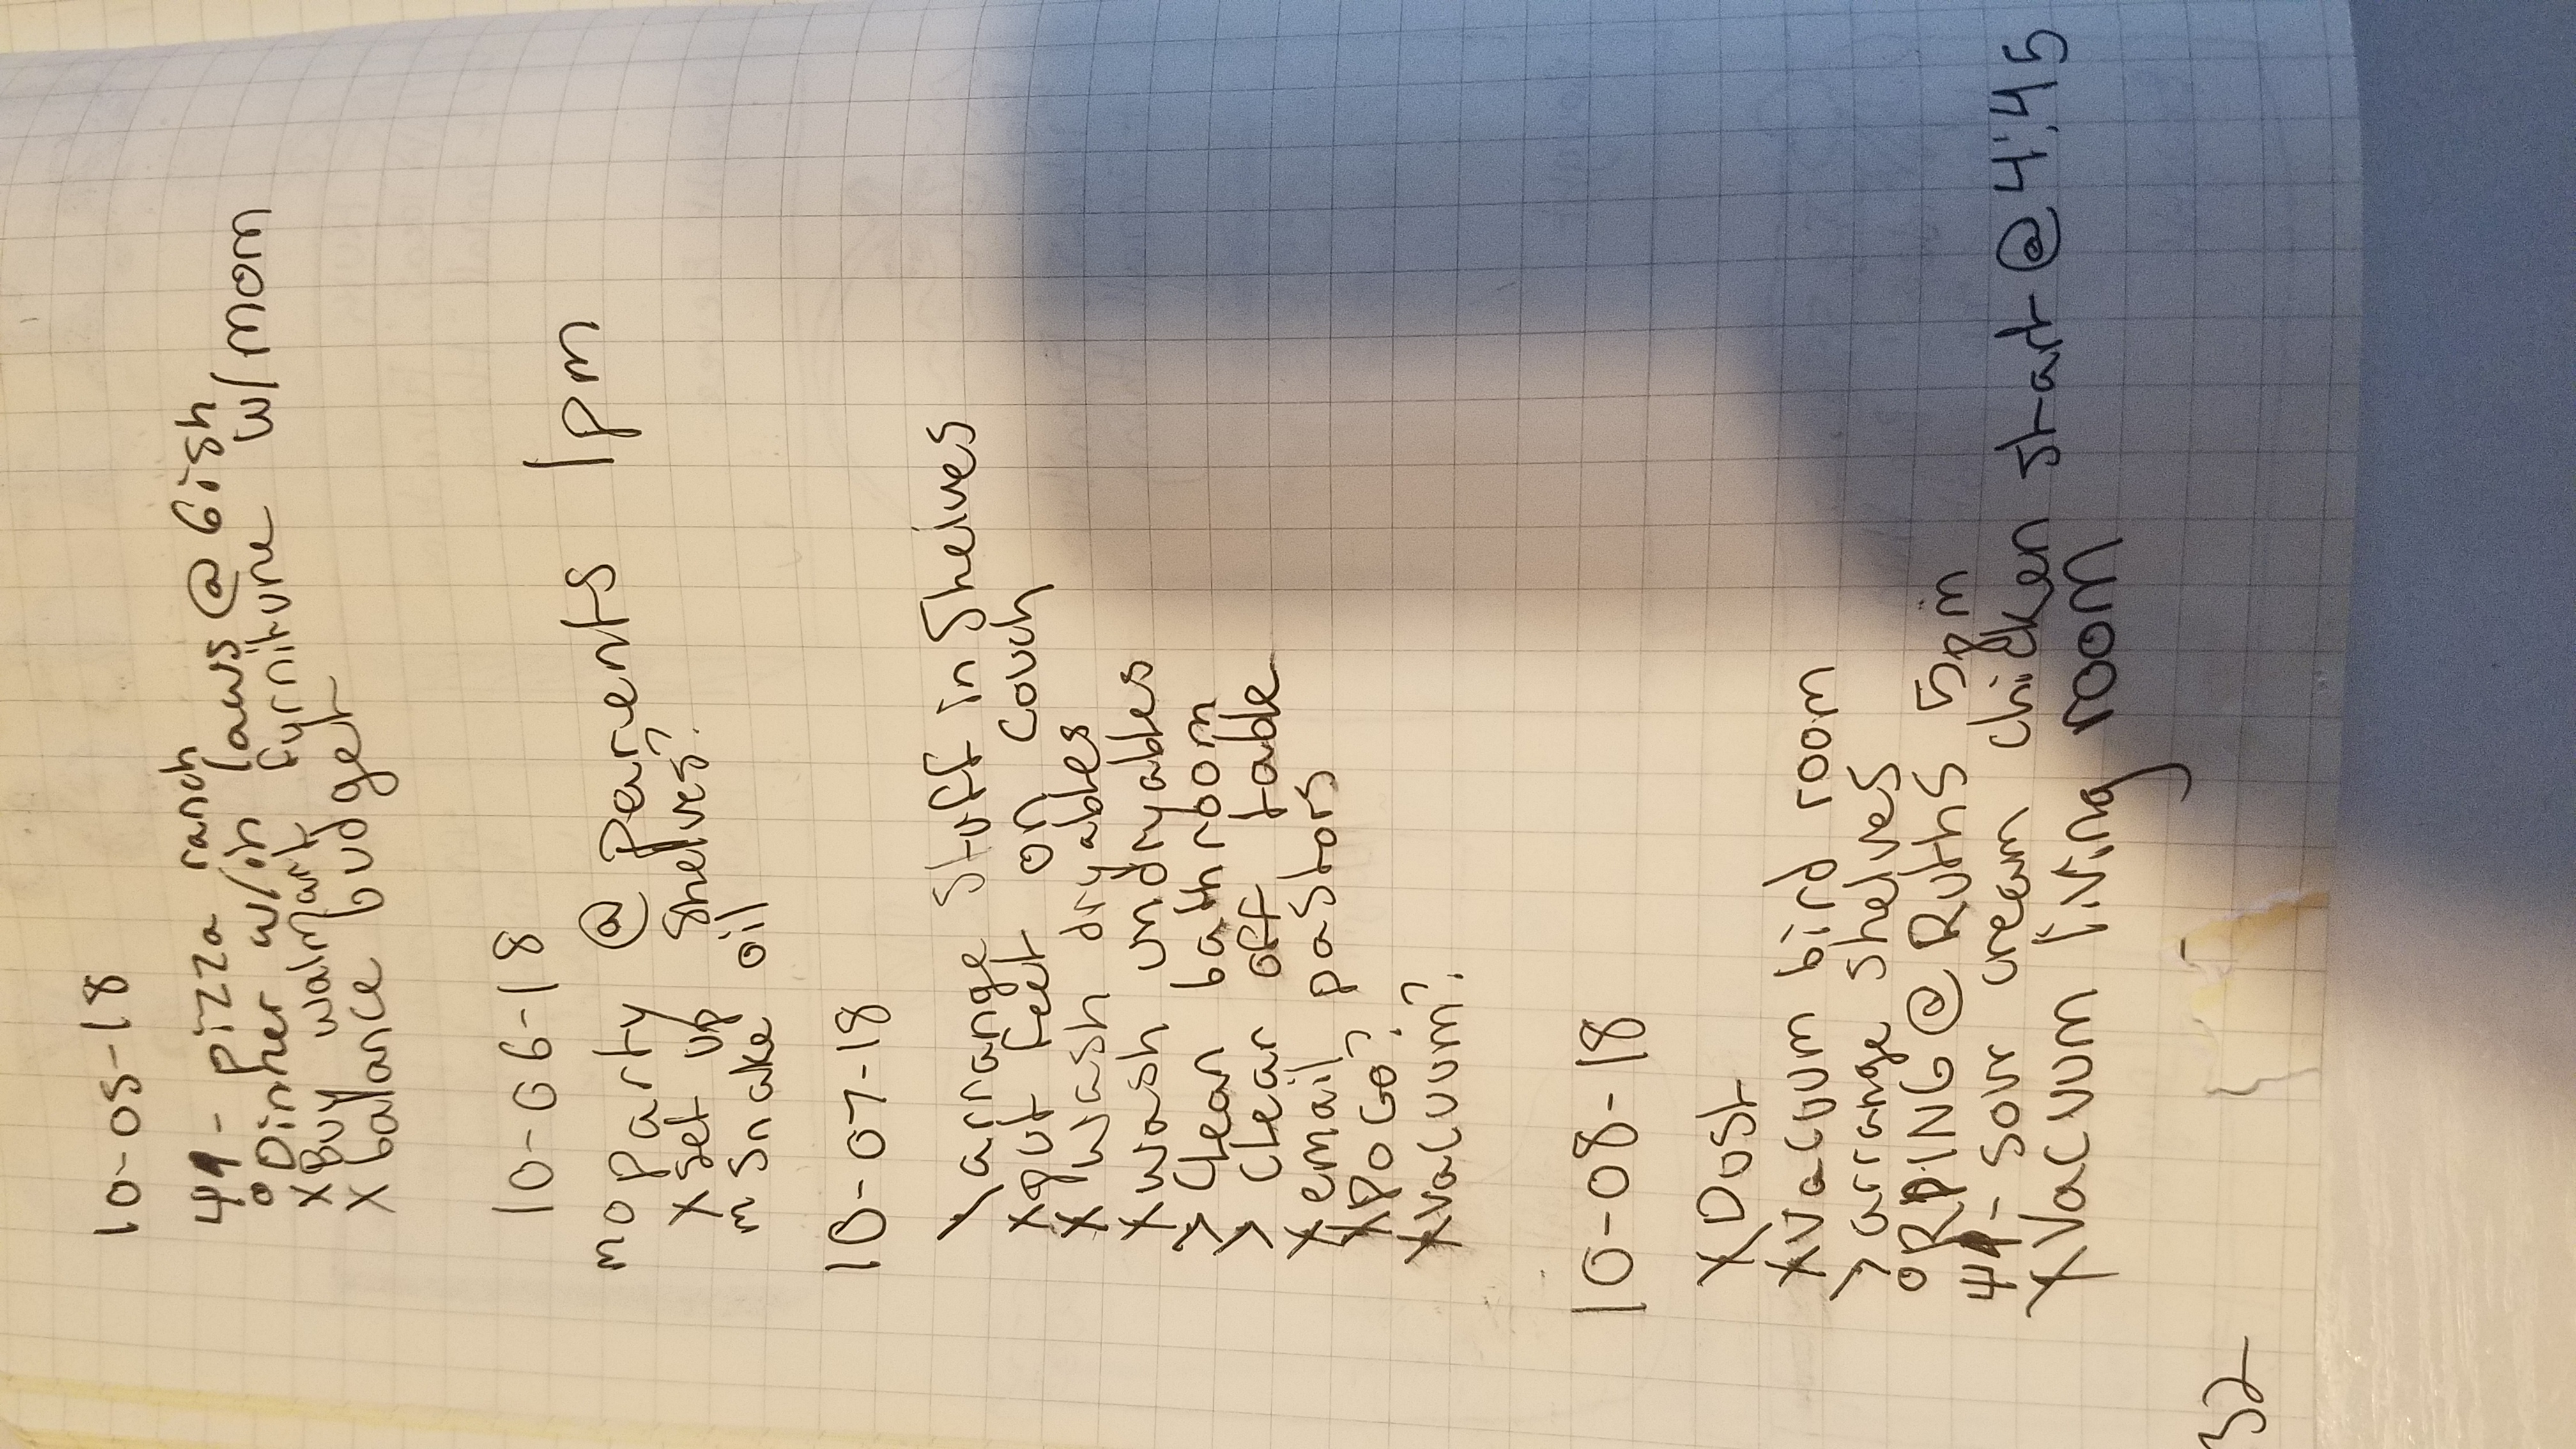 10-05-18
4 - Pizza ranch
o Dinner w/in laws @ 6ish
x Buy walmart furniture w/ mom
x balance budget
10-06-18
o Party @ Parents 1pm
x set up shelves?
snake oil
10-07-18
\ arrange stuff in Sheives
x put feet on couch
x wash dryables
x wash undryables
> clean bathroom
> clear off table
x email pastors
x POGO?
x vacuum?
10-08-18
x Dust
x Vacuum bird room
> arrange shelves
o RPING @ Ruths 5pm
4 - sour cream chicken start @ 4:45
x Vacuum living room
32